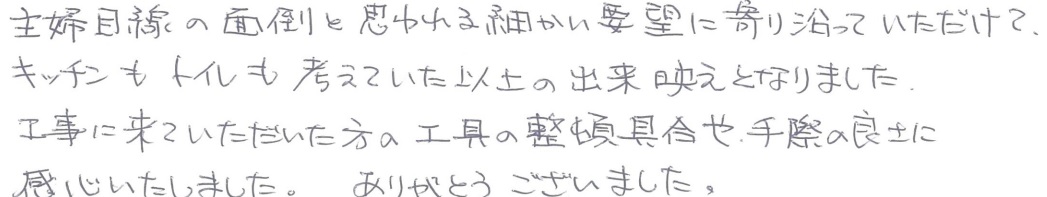 主婦目線の面倒と思われる細かい要望に寄り沿っていただけて、
キッチンも トイレも 考えていた以上の出来映えとなりました.
工事に来ていただいた方の工具の整頓具合や、手際の良さに
感心いたしました。 ありがとうございました。